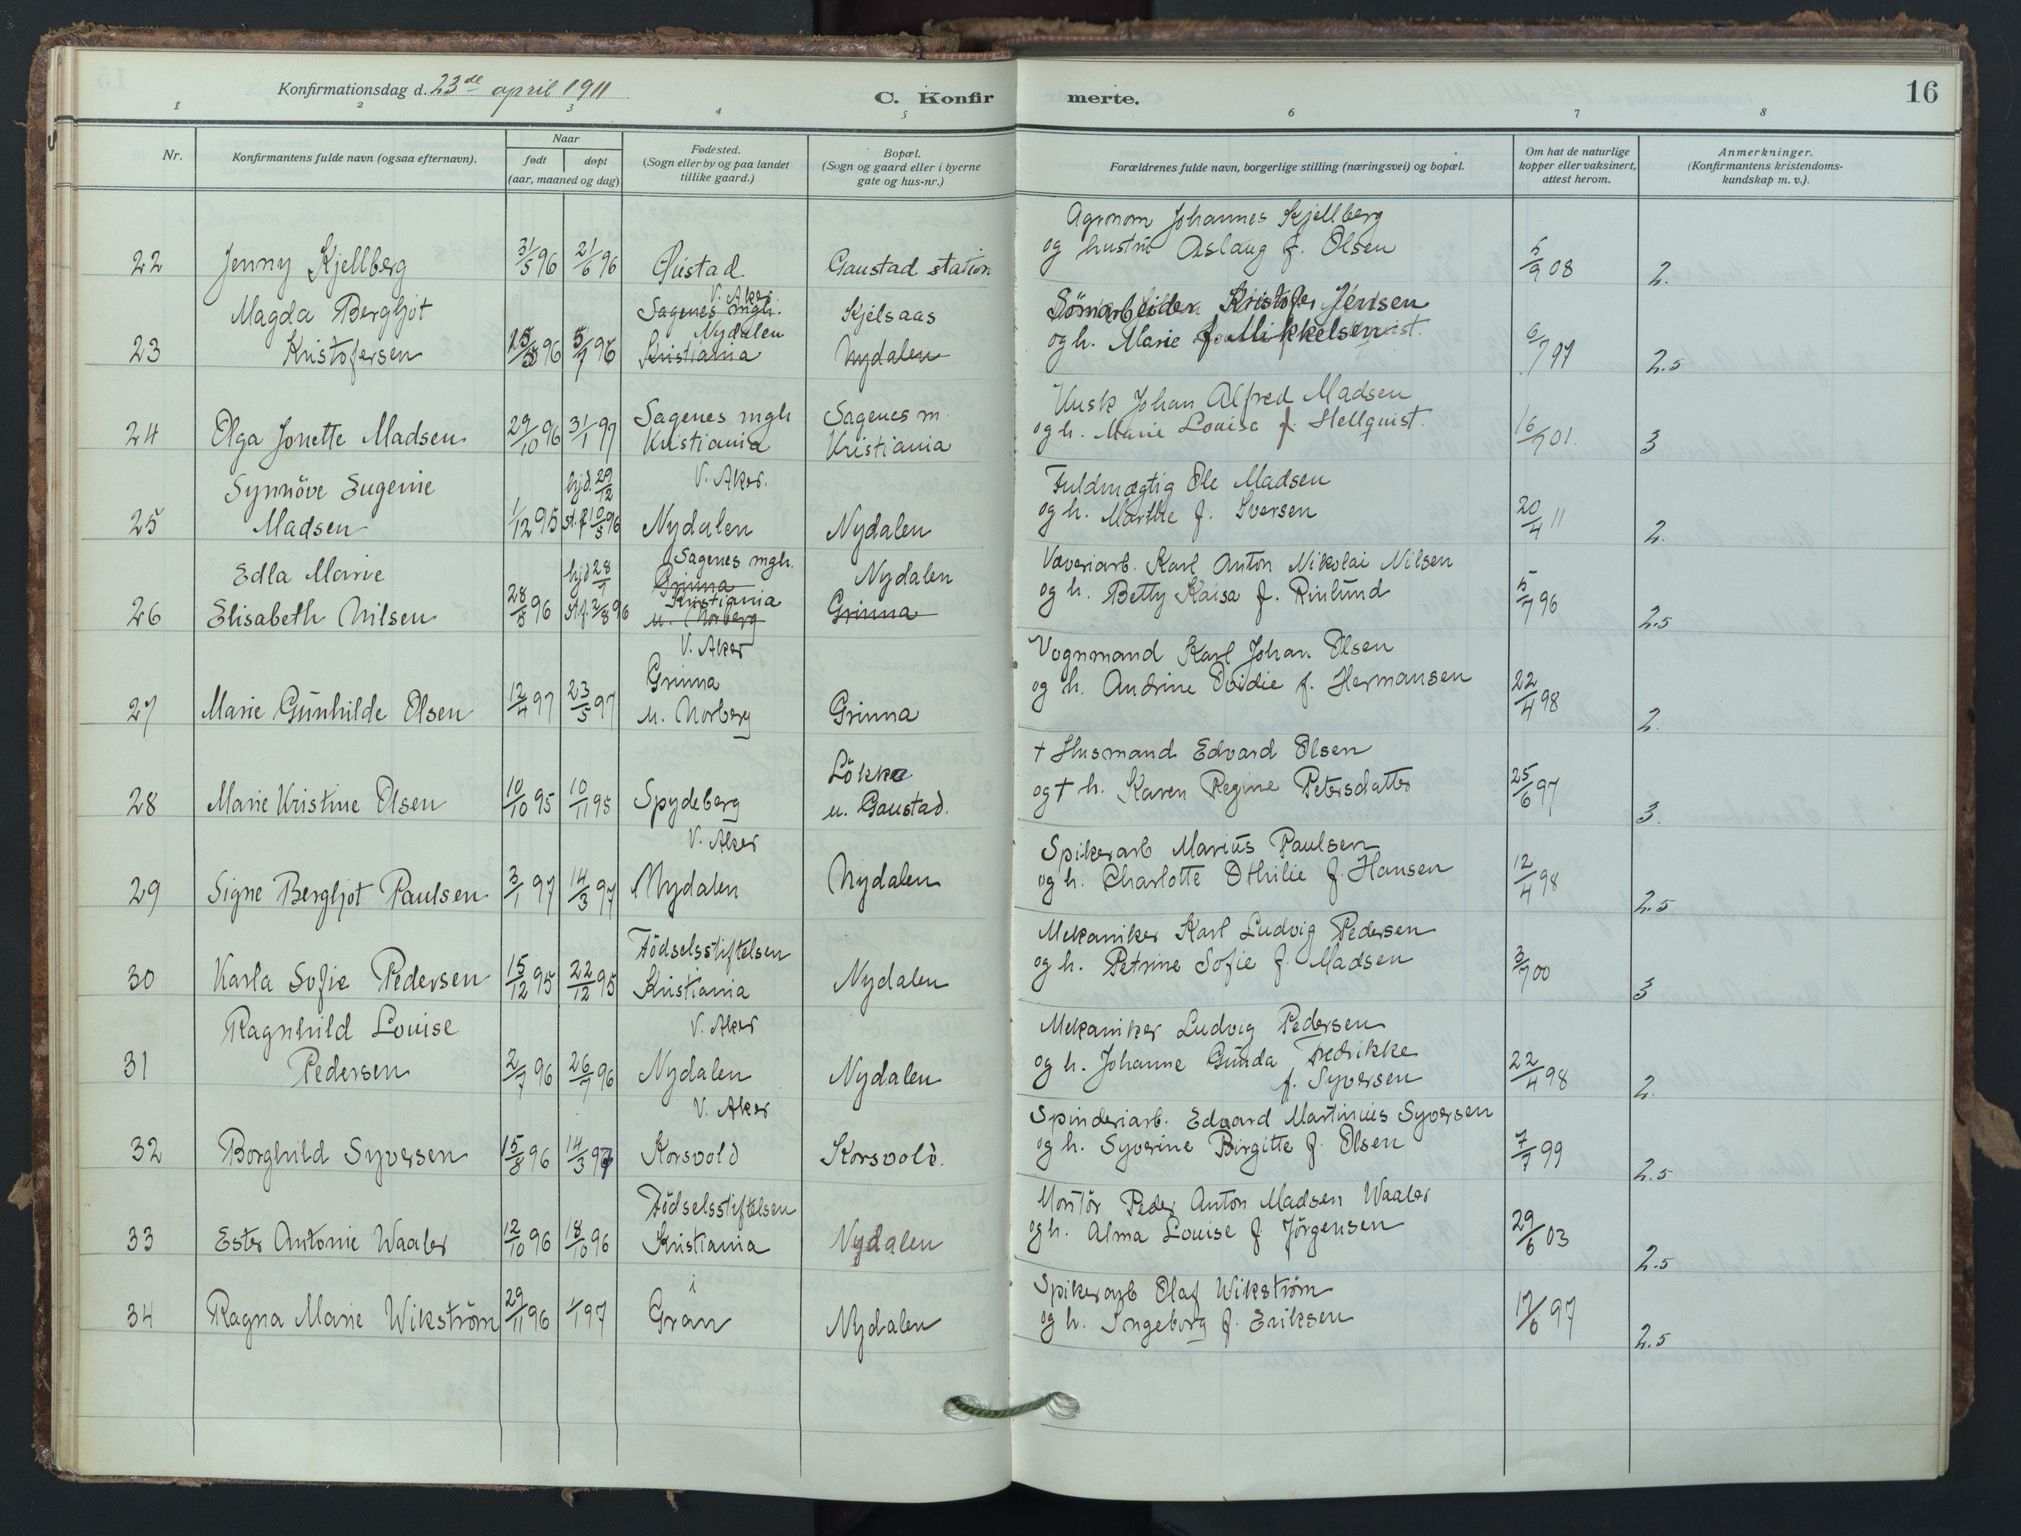 Konfirmationsdag d. 23de april 1911
C. Konfirmerte.
16
1 2 3 4 5 6 7 8
Nr.
Konfirmantens fulde navn (ogsaa efternavn).
Naar
født døpt
(aar, maaned og dag)
Fødested.
(Sogn eller by og paa landet
tillike gaard.)
Bopæl.
(Sogn og gaard eller i byerne
gate og hus-nr.)
Forældrenes fulde navn, borgerlige stilling (næringsvei) og bopæl.
Om hat de naturlige
kopper eller vaksinert,
attest herom.
Anmerkninger.
(Konfirmantens kristendoms-
kundskap m. v.).
Agronom Johannes Kjellberg
og hustru Aslaug f. Olsen
22 Jenny Kjellberg 31/5 96 21/6 96 Gaustad station 5/9 08 2.
V. Aker.
Magda Bergljot Sagenes mgh. Kjelsaas Kristofer Jensen
Nydalen
23 Kristofersen 96 5/7 96 Kristiania Nydalen og h. Marie f. Mikkelsen 6/7 97 2.5
Sagenes mgh Sagenes m. Kusk Johan Alfred Madsen
24 Olga Jonette Madsen 29/10 96 31/1 97 Kristiania Kristiania og h. Marie Louise f. Hellquist. 16/7 01. 3
Synnöve Eugenie hjd. 29/12 V. Aker. Fuldmægtig Ole Madsen
25 Madsen 1/12 95 st.f. 10/5 96 Nydalen Nydalen og h. Marthe f. Iversen 20/4 11 2.
Edla Marie hjd 28/7 Sagenes mgh. Nydalen Væveriarb. Karl Anton Nikolai Nilsen
Grinna
Kristiania
26 Elisabeth Nilsen 96 st.f. 2/8 96 u. Norberg Grinna og h. Betty Kaisa f. Rinlund 5/7 96 2.5
V. Aker
Grinna Vognmand Karl Johan Olsen
27 Marie Gunhilde Olsen 12/4 97 23/5 97 u. Norberg Grinna og h. Andrine Ovidie f. Hermansen 22/4 98 2.
Lökka † Husmand Edvard Olsen
28 Marie Kristine Olsen 10/10 95 10/11 95 Spydeberg u. Gaustad. og † h. Karen Regine Petersdatter 25/6 97 3.
V. Aker Spikerarb Marius Paulsen
29 Signe Bergljot Paulsen 3/1 97 14/3 97 Nydalen Nydalen og h. Charlotte Othilie f. Hansen 12/4 98 2.5
Födselsstiftelsen Mekaniker Karl Ludvig Pedersen
30 Karla Sofie Pedersen 15/12 95 22/12 95 Kristiania Nydalen og h. Petrine Sofie f. Madsen 3/7 00 3
Ragnhild Louise V. Aker Mekaniker Ludvig Pedersen
31 Pedersen 2/7 96 26/7 96 Nydalen Nydalen og h. Johanne Gunda Fredrikke 22/4 98 2.
f. Syversen
V. Aker Spinderiarb. Edvard Martinius Syversen
32 Borghild Syversen 15/8 96 14/3 97 Korsvold Korsvold. og h. Syverine Birgitte f. Olsen 7/7 99 2.5
Födselsstiftelsen Montör Peder Anton Madsen Waaler
33 Ester Antonie Waaler 12/10 96 18/10 96 Kristiania Nydalen og h. Alma Louise f Jörgensen 29/6 03 2.5
Spikerarb Olaf Wikström
34 Ragna Marie Wikström 29/11 96 1/1 97 Gran Nydalen og h. Ingeborg f. Eriksen 17/6 97 2.5